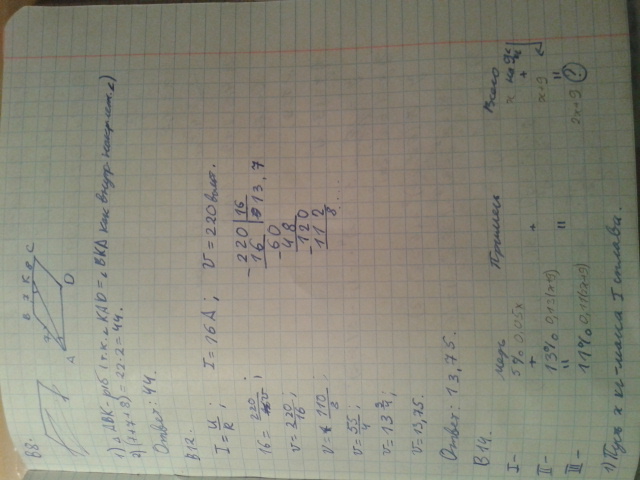 B8.
B 7 K 8 C
7
A D
1) △ABK - р/б (т.к. ∠KAD = ∠BKA как внутр. накрест. ∠)
2) (7+7+8) = 22·2 = 44.
Ответ: 44.
B12.
I = U/R ; I = 16A ; U = 220 вольт.
16 = 220/ ;
v = 220/16 ;
v = 110/8 ;
v = 55/4 ;
v = 13 3/4 ;
v = 13,75.
220 | 16
16 | 13,7
60
48
120
112
8 ...
Ответ: 13,75.
B14.
медь Примеси Всего
I - 5% 0,05x x
+ +
II - 13% 0,13(x+9) + x+9
= = =
III - 11% 0,11(2x+9) 2x+9 ?
1) Пусть x кг - масса I сплава.